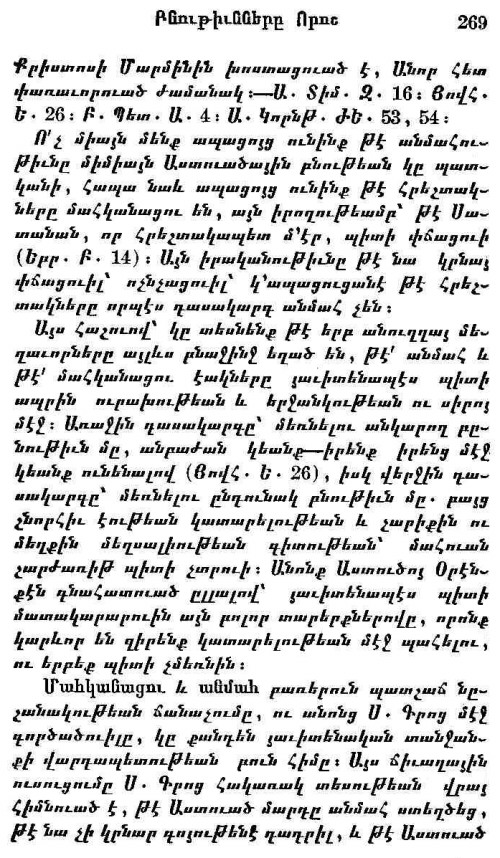 Բնութիւնները Որոշ 269
Քրիստոսի Մարմինին խոստացուած է, Անոր հետ
փառաւորուած ժամանակ։—Ա. Տիմ. Զ. 16։ Յովհ.
Ե. 26։ Բ. Պետ. Ա. 4։ Ա. Կորնթ. ԺԵ. 53, 54։
Ո՛չ միայն մենք ապացոյց ունինք թէ անմահու-
թիւնը միմիայն Աստուածային բնութեան կը պատ-
կանի, հապա նաև ապացոյց ունինք թէ հրեշտակ-
ները մահկանացու են, այն իրողութեամբ՝ թէ Սա-
տանան, որ հրեշտակապետ մ՚էր, պիտի փճացուի
(Եբր. Բ. 14)։ Այն իրականութիւնը թէ նա կրնայ
փճացուիլ՝ ոչնչացուիլ՝ կ՚ապացուցանէ թէ հրեշ-
տակները որպէս դասակարգ անմահ չեն։
Այս հաշուով՝ կը տեսնենք թէ երբ անուղղայ մե-
ղաւորները այլևս բնաջինջ եղած են, թէ՛ անմահ և
թէ՛ մահկանացու էակները յաւիտենապէս պիտի
ապրին ուրախութեան և երջանկութեան ու սիրոյ
մէջ։ Առաջին դասակարգը՝ մեռնելու անկարող բը-
նութիւն մը, անբաժան կեանք—իրենք իրենց մէջ
կեանք ունենալով (Յովհ. Ե. 26), իսկ վերջին դա-
սակարգը՝ մեռնելու ընդունակ բնութիւն մը. բայց
շնորհիւ էութեան կատարելութեան և չարիքին ու
մեղքին մեղսալիութեան գիտութեան՝ մահուան
շարժառիթ պիտի չտրուի։ Անոնք Աստուծոյ Օրէն-
քէն գնահատուած ըլլալով՝ յաւիտենապէս պիտի
մատակարարուին այն բոլոր տարերքներովը, որոնք
կարևոր են զիրենք կատարելութեան մէջ պահելու,
ու երբեք պիտի չմեռնին։
Մահկանացու և անմահ բառերուն պատշաճ նը-
շանակութեան ճանաչումը, ու անոնց Ս. Գրոց մէջ
գործածուիլը, կը քանդեն յաւիտենական տանջան-
քի վարդապետութեան բուն հիմը։ Այս ճիւաղային
ուսուցումը Ս. Գրոց հակառակ տեսութեան վրայ
հիմնուած է, թէ Աստուած մարդը անմահ ստեղծեց,
թէ նա չի կրնար գոյութենէ դադրիլ, և թէ Աստուած